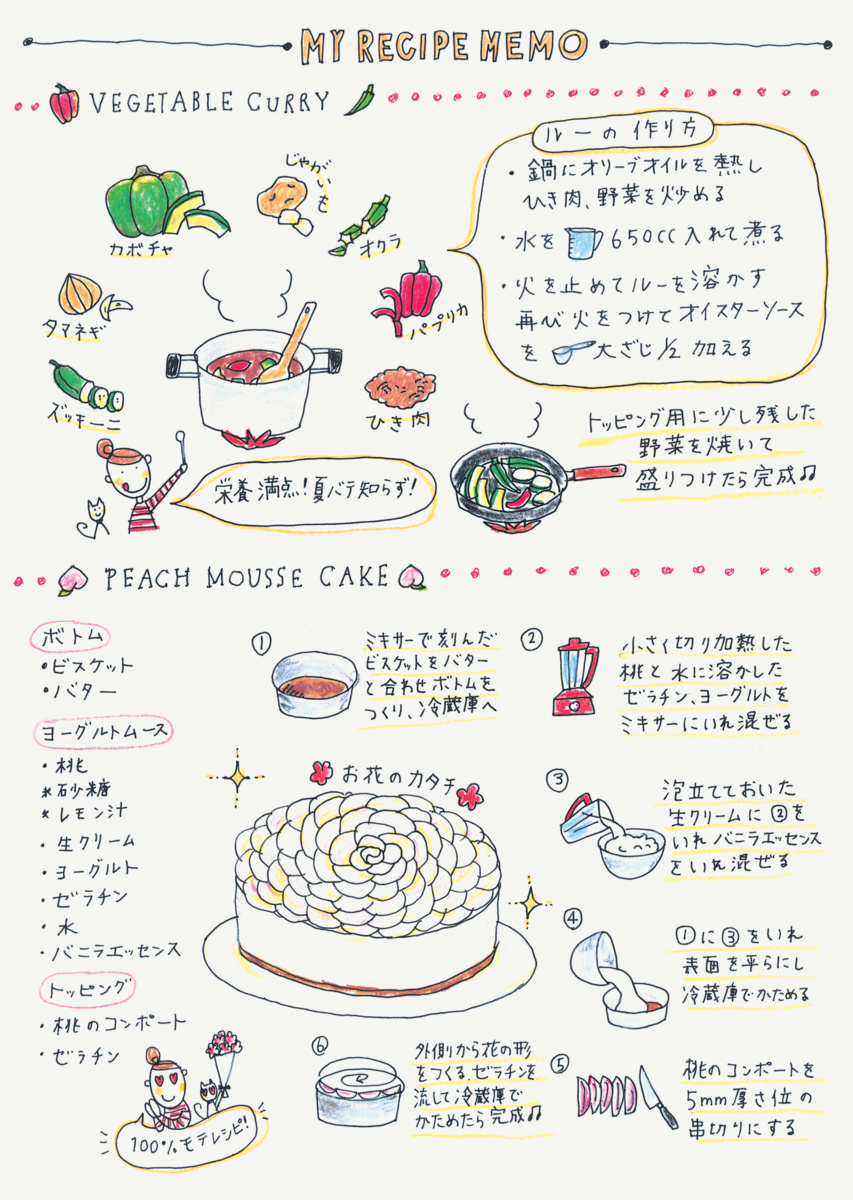 MY RECIPE MEMO
VEGETABLE CURRY
カボチャ
じゃがいも
オクラ
タマネギ
パプリカ
ズッキーニ
ひき肉
ルーの作り方
・鍋にオリーブオイルを熱し
ひき肉、野菜を炒める
・水を 650CC 入れて煮る
・火を止めてルーを溶かす
再び火をつけてオイスターソース
を 大さじ1/2 加える
栄養満点!夏バテ知らず!
トッピング用に少し残した
野菜を焼いて
盛りつけたら完成♫
PEACH MOUSSE CAKE
ボトム
・ビスケット
・バター
ヨーグルトムース
・桃
*砂糖
*レモン汁
・生クリーム
・ヨーグルト
・ゼラチン
・水
・バニラエッセンス
トッピング
・桃のコンポート
・ゼラチン
100%モテレシピ!
①
ミキサーで刻んだ
ビスケットをバター
と合わせボトムを
つくり、冷蔵庫へ
②
小さく切り加熱した
桃と水に溶かした
ゼラチン、ヨーグルトを
ミキサーにいれ混ぜる
お花のカタチ
③
泡立てておいた
生クリームに②を
いれバニラエッセンス
をいれ混ぜる
④
①に③をいれ
表面を平らにし
冷蔵庫でかためる
⑤
桃のコンポートを
5mm厚さ位の
串切りにする
⑥
外側から花の形
をつくる、ゼラチンを
流して冷蔵庫で
かためたら完成♫